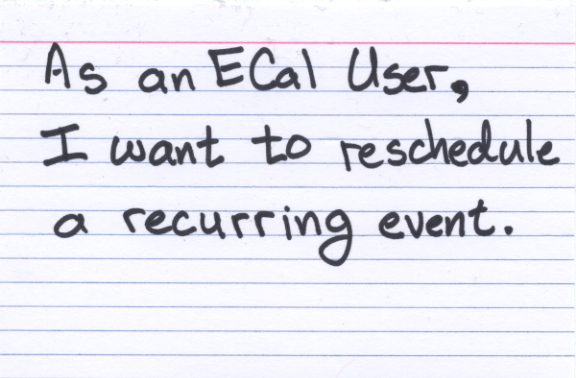 As an ECal User,
I want to reschedule
a recurring event.